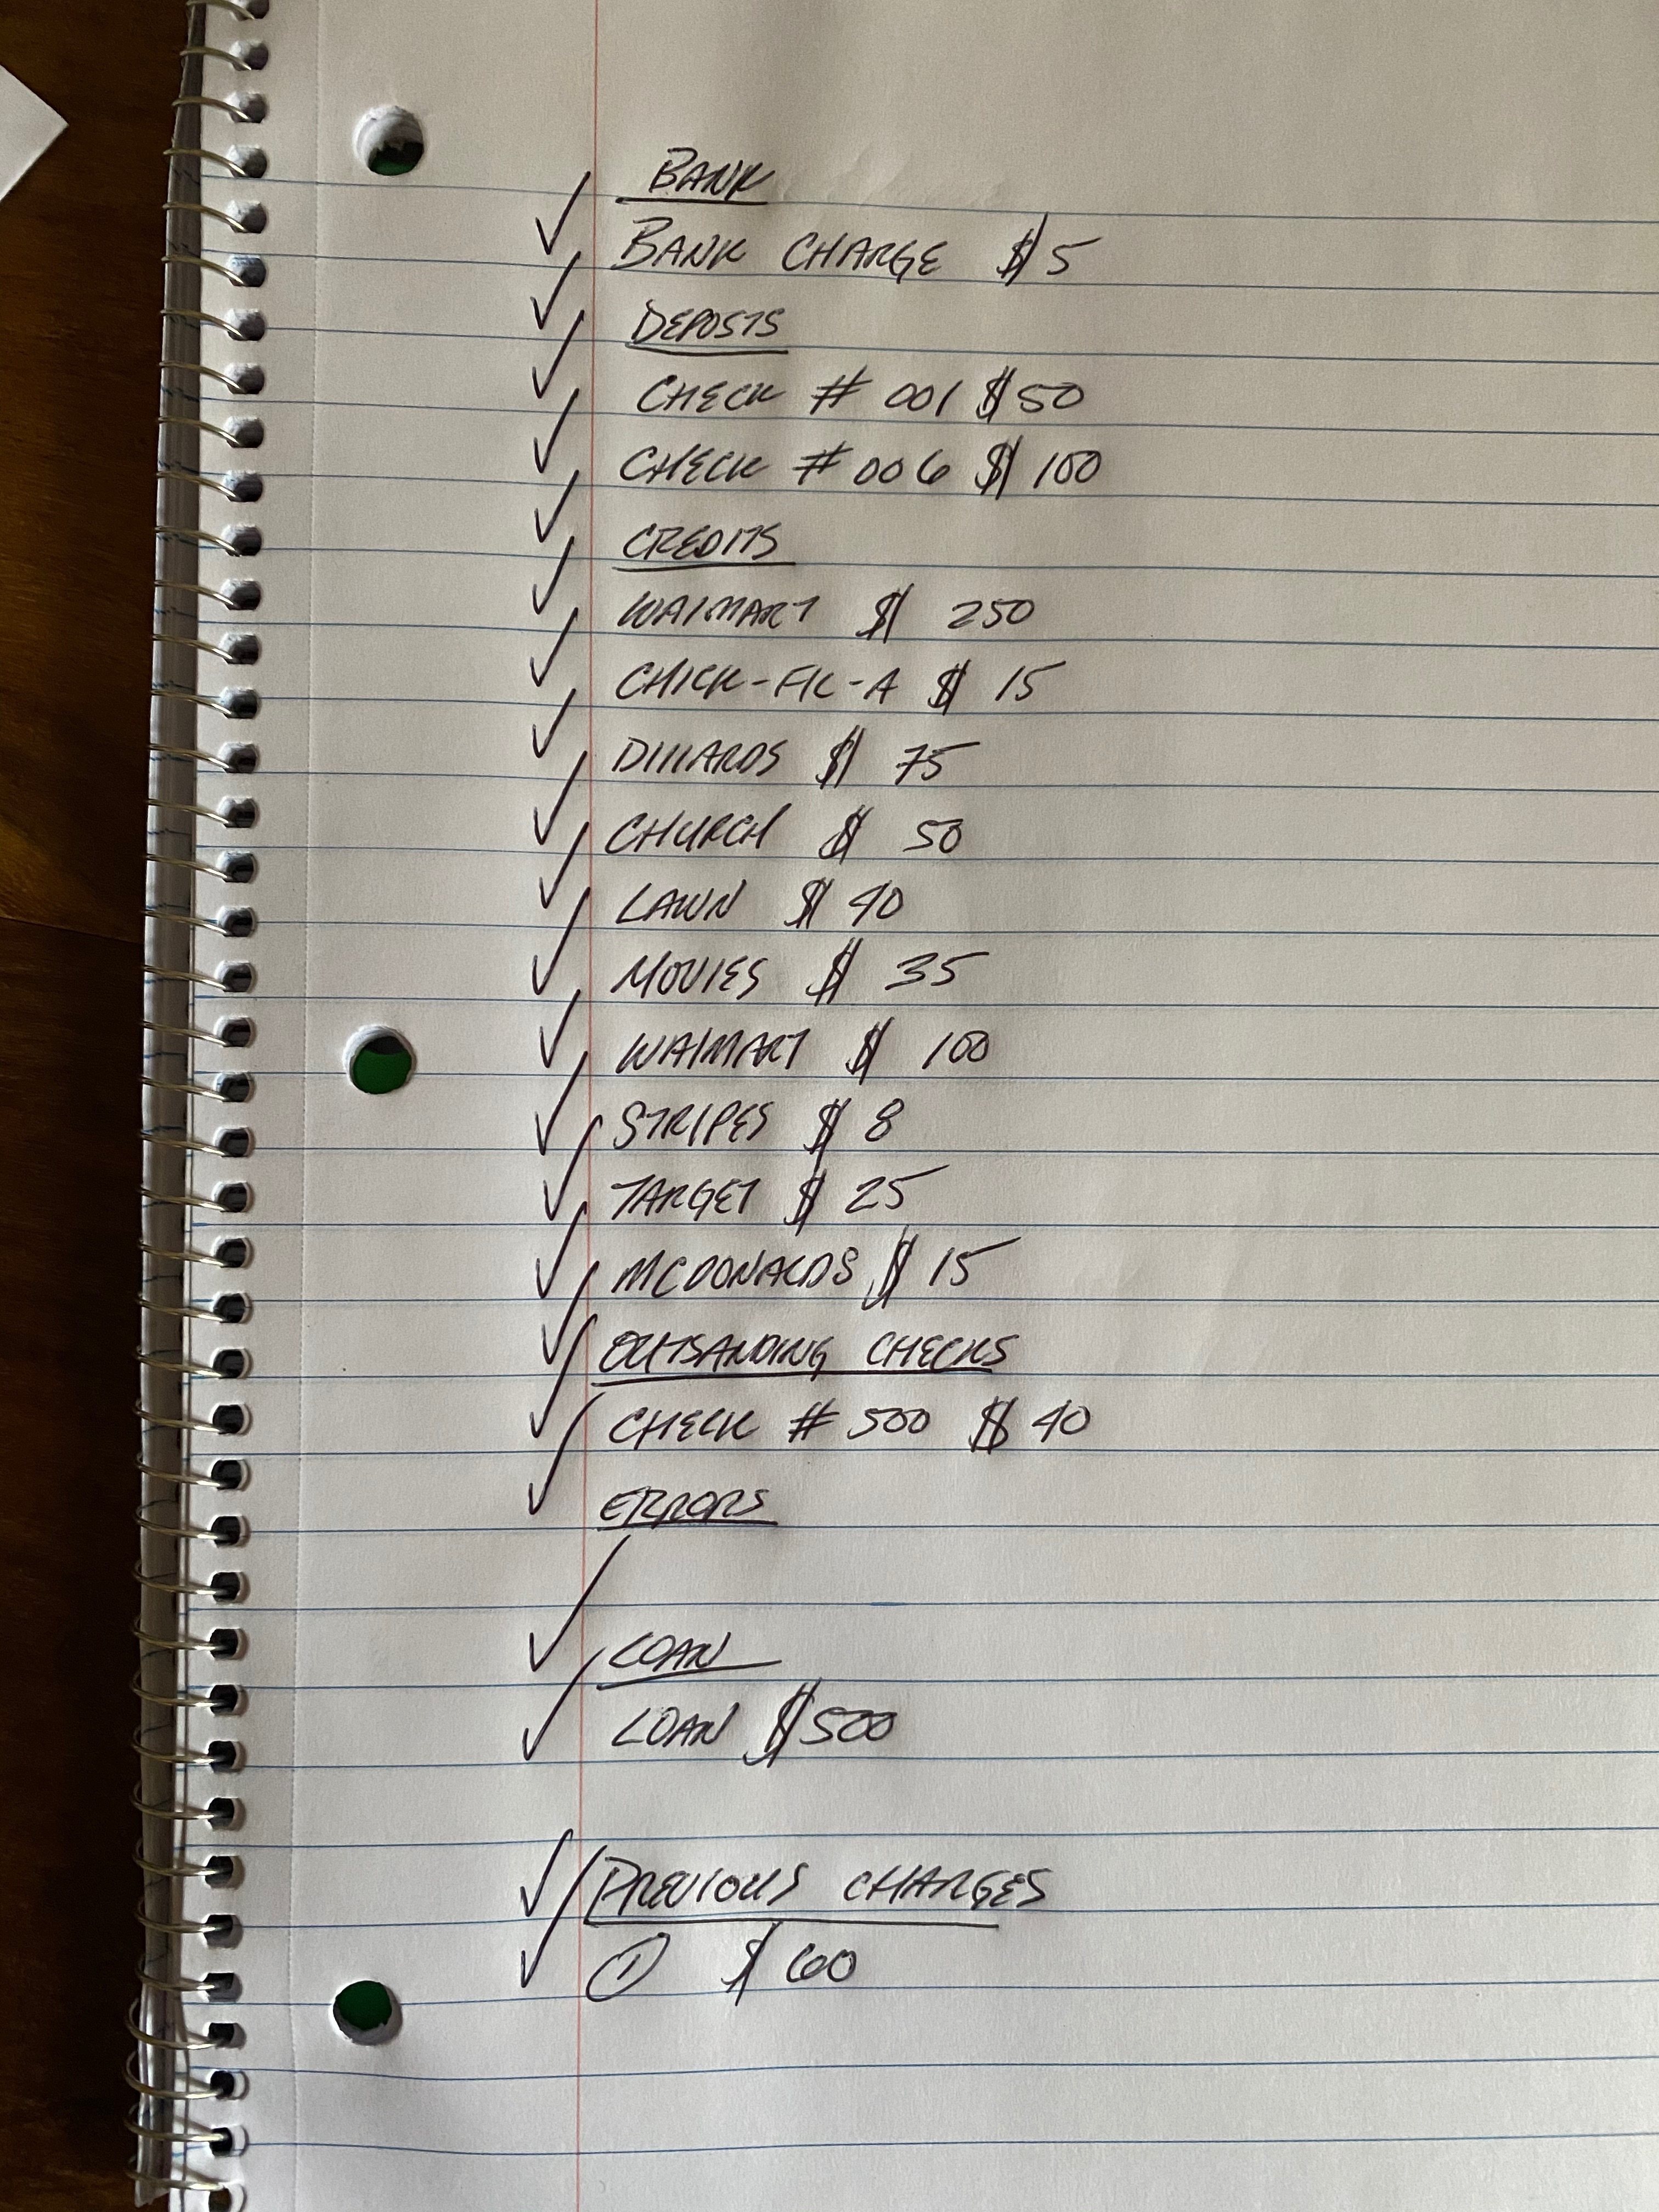 BANK
BANK CHARGE $5
DEPOSTS
CHECK # 001 $50
CHECK # 006 $100
CREDITS
WALMART $ 250
CHICK-FIL-A $ 15
DILLARDS $ 75
CHURCH $ 50
LAWN $ 40
MOVIES $ 35
WALMART $ 100
STRIPES $ 8
TARGET $ 25
MCDONALDS $ 15
OUTSANDING CHECKS
CHECK # 500 $ 40
ERRORS
LOAN
LOAN $500
PREVIOUS CHARGES
① $ 60